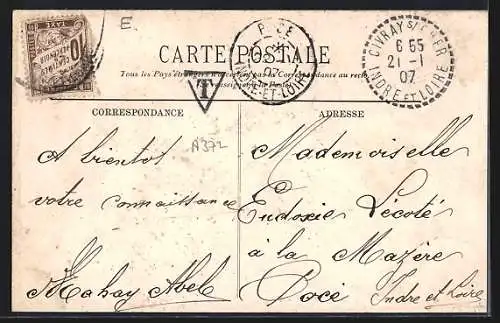 E
CARTE POSTALE
Tous les Pays n'acceptent pas la Correspondance au recto
CORRESPONDANCE
ADRESSE
A372
A bientot
votre connaissance
Mahay Abel
Mademoiselle
Eudoxie Lécoté
à la Mazère
Pocé
Indre et Loire
10
TAXE
T
INDRE-ET-LOIRE
07
CIVRAY S/ CHER
6 55
21 - 1
07
INDRE ET LOIRE